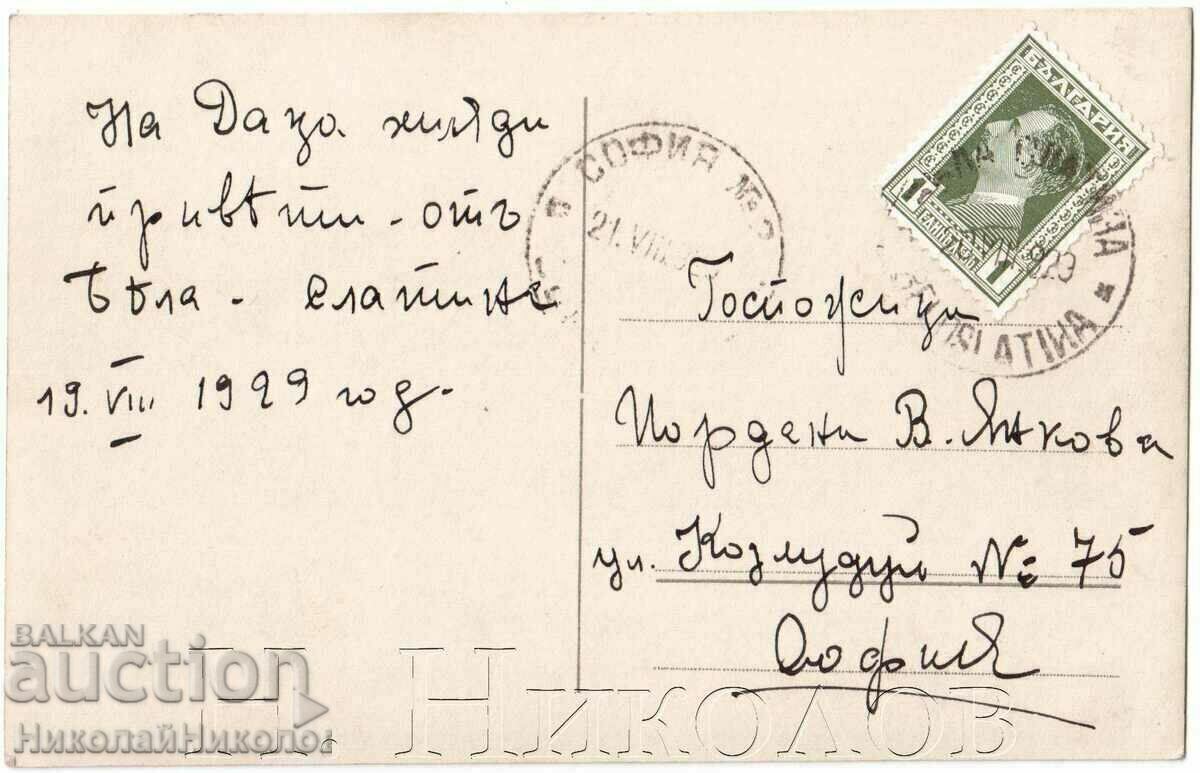 На Даца хиляди
привѣти - отъ
Бѣла - Слатина
19. VIII 1929 год.
СОФИЯ № 2
21. VIII.
БЪЛГАРИЯ
1
1
СЛАТИНА
SLATINA
Госпожица
Йордана В. Янкова
ул. Козлудуй № 75
София
BALKAN
auction
НиколайНиколов
Н. Николов